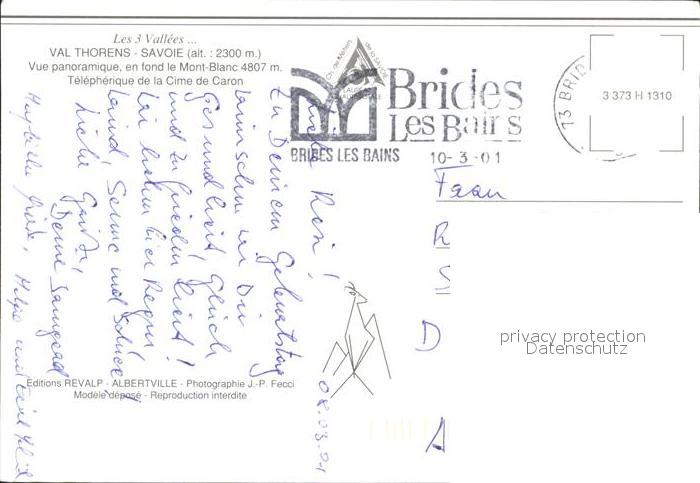 Les 3 Vallées ...
VAL THORENS - SAVOIE (alt. : 2300 m.)
Vue panoramique, en fond le Mont-Blanc 4807 m.
Téléphérique de la Cime de Caron
Brides
Les Bains
BRIDES LES BAINS 10-3-01
73 BRID
3 373 H 1310
08.03.01
Liebe Rosi!
Zu Deinem Geburtstag
wünschen wir Dir
Gesundheit, Glück
und Zufriedenheit!
Wir haben hier Regen,
Wind, Sonne und Schnee!
Liebe Grüße,
Deine
Herzliche Grüße, Helga und
Frau
R
S
D
A
privacy protection
Datenschutz
Editions REVALP - ALBERTVILLE - Photographie J.-P. Fecci
Modèle déposé - Reproduction interdite